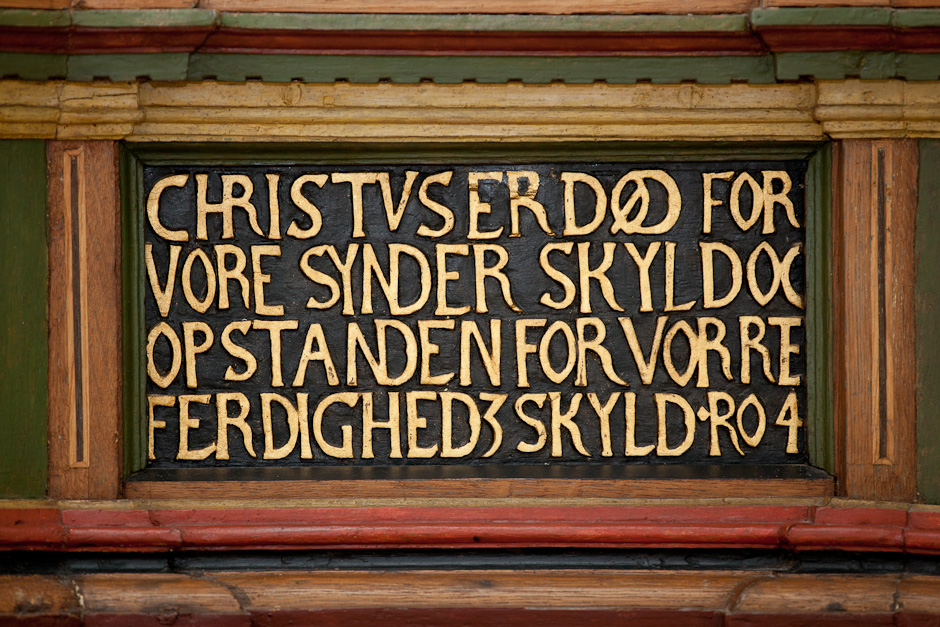 CHRISTVS ER DØD FOR
VORE SYNDER SKYLD OC
OPSTANDEN FOR VOR RE
FERDIGHEDZ SKYLD · RO 4